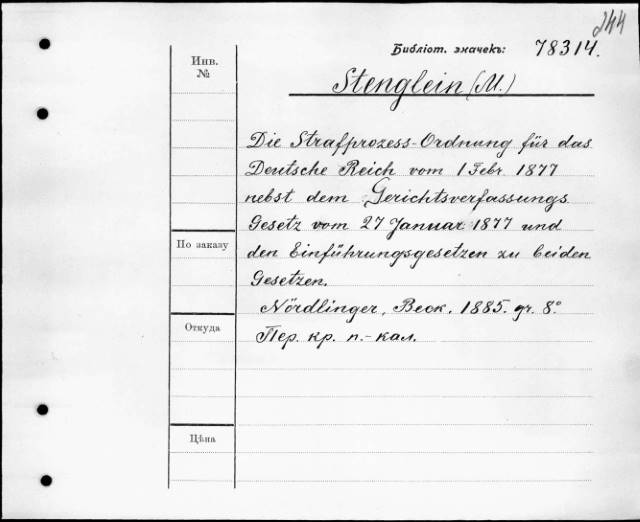 244
Библіот. значекъ: 78314.
Инв.
№
Stenglein (M.)
Die Strafprozess-Ordnung für das
Deutsche Reich vom 1 Febr. 1877
nebst dem Gerichtsverfassungs
Gesetz vom 27 Januar 1877 und
den Einführungsgesetzen zu beiden
Gesetzen.
Nördlinger, Beck. 1885. gr. 8°
Пер. кр. п.-кал.
По заказу
Откуда
Цѣна